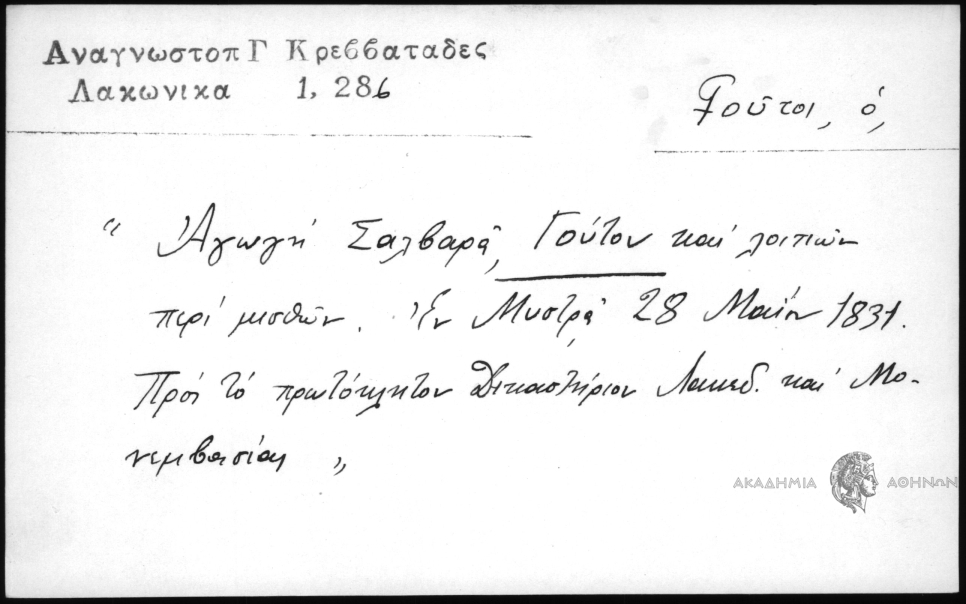 Αναγνωστοπ Γ Κρεββαταδες
Λακωνικα 1, 286
Γοῦτοι, ὁ,
" Ἀγωγή Σαλβαρᾶ, Γούτου καί λοιπῶν
περί μισθῶν. Ἐν Μυστρᾷ 28 Μαΐου 1831.
Πρός τό πρωτόκλητον Δικαστήριον Λακεδ. καί Μο-
νεμβασίας "
ΑΚΑΔΗΜΙΑ ΑΘΗΝΩΝ